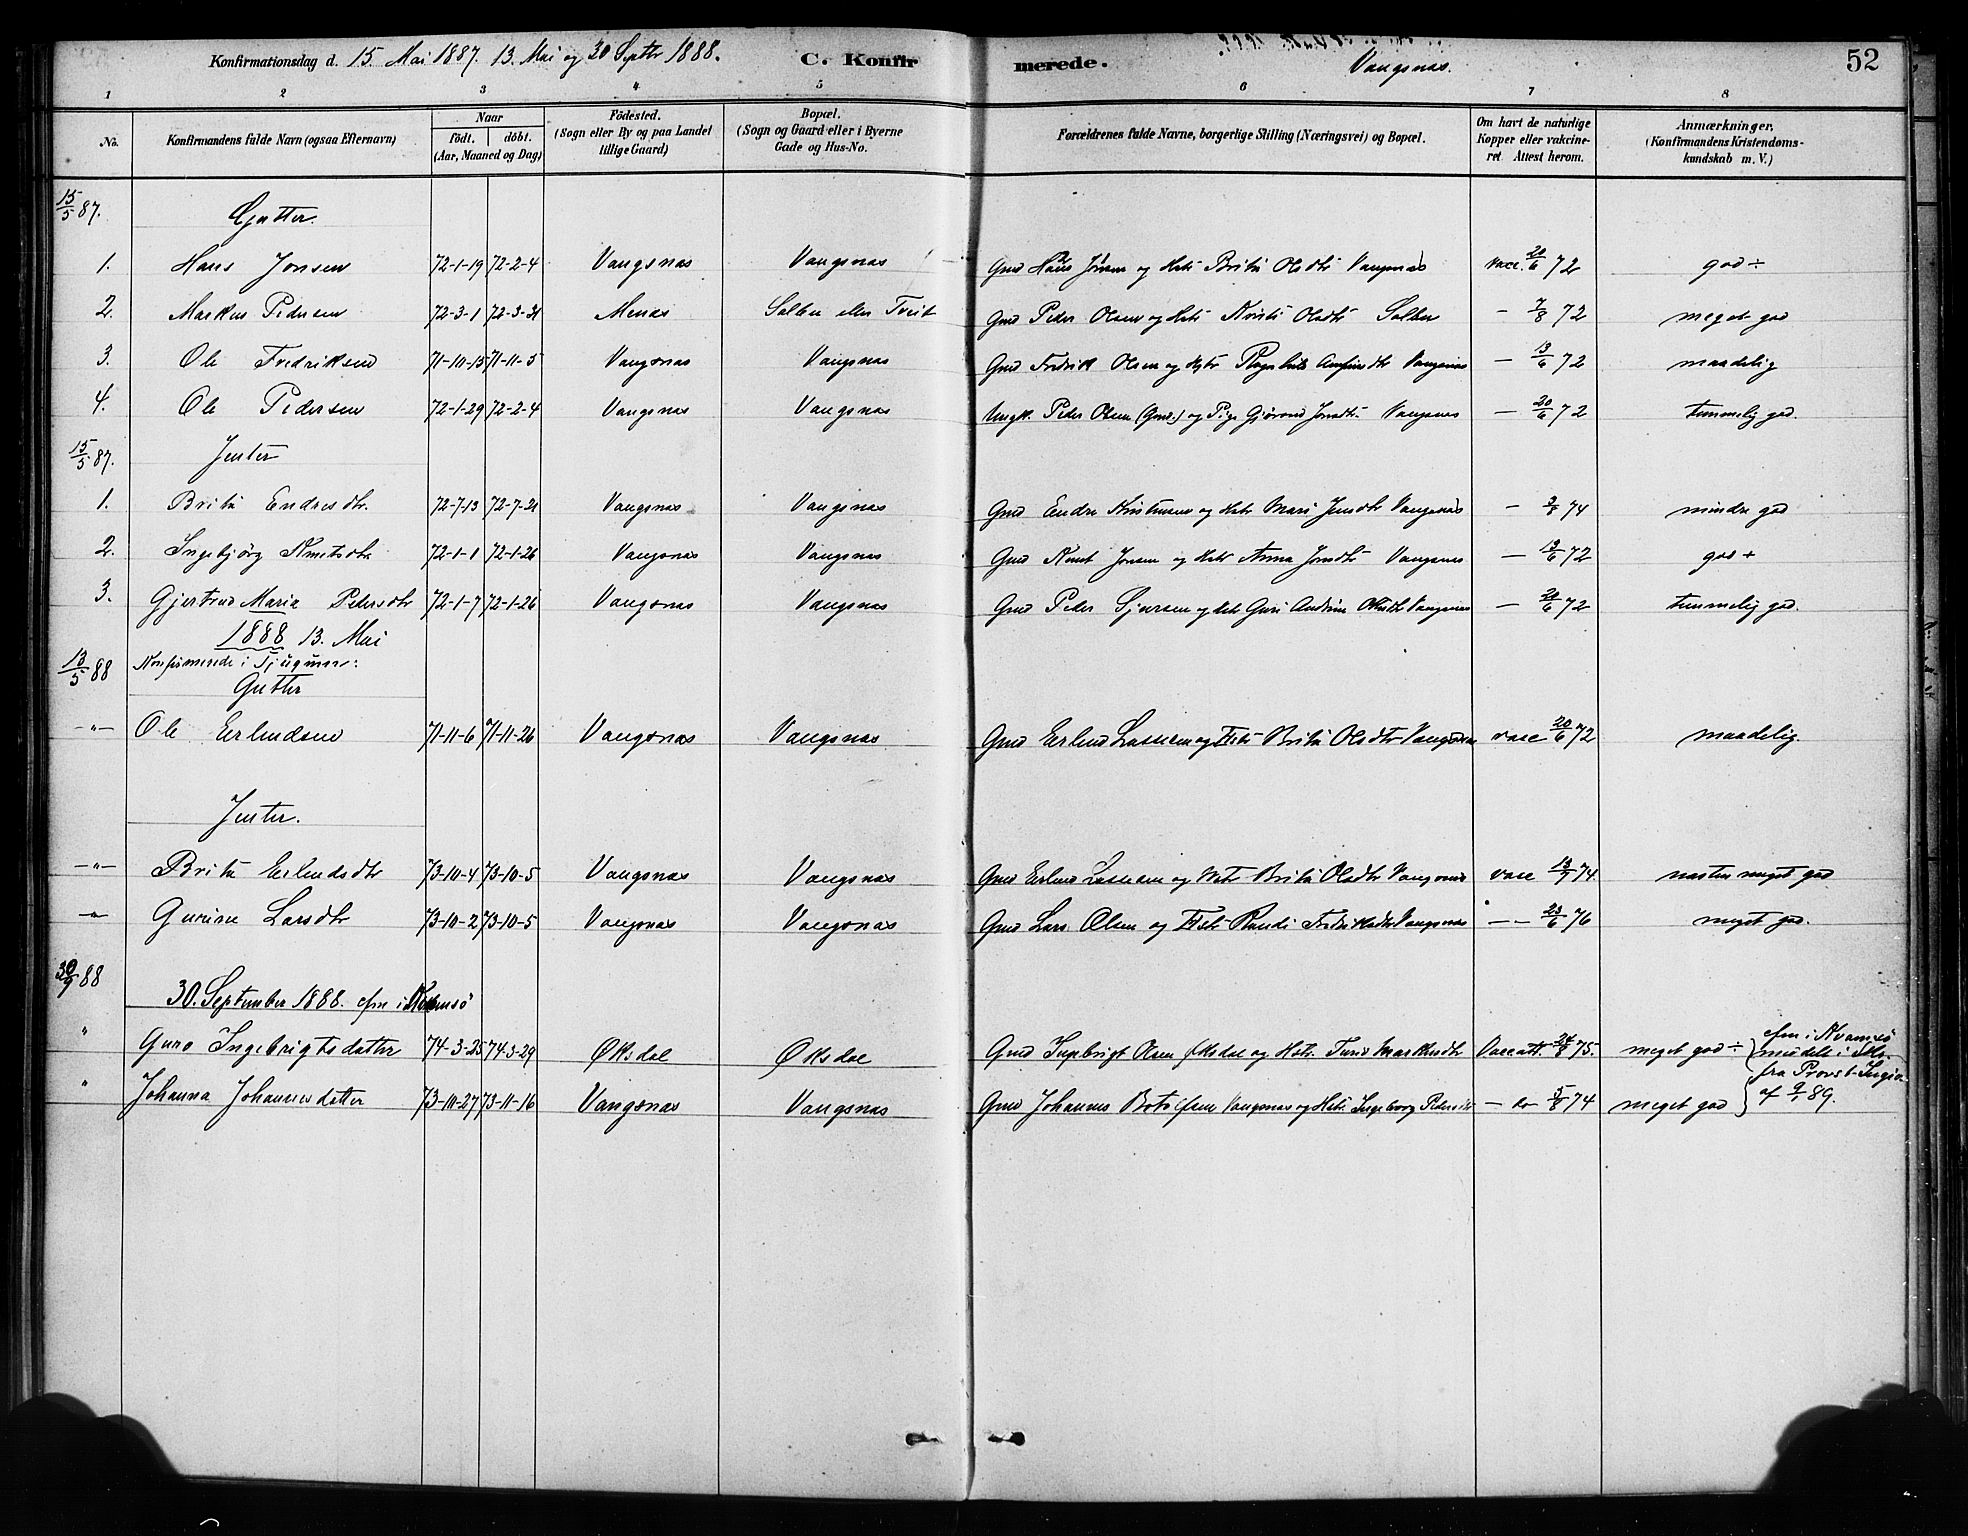 Konfirmationsdag d. 15. Mai 1887. 13. Mai og 30 Septbr 1888. C. Konfirmerede. Vangsnæs. 52
1 2 3 4 5 6 7 8
No. Konfirmandens fulde Navn (ogsaa Efternavn) Naar født. døbt. (Aar, Maaned og Dag) Fødested. (Sogn eller By og paa Landet tillige Gaard) Bopæl. (Sogn og Gaard eller i Byerne Gade og Hus-No. Forældrenes fulde Navne, borgerlige Stilling (Næringsvei) og Bopæl. Om havt de naturlige Kopper eller vakcineret Attest herom. Anmærkninger, (Konfirmandens Kristendomskundskab m. V.)
15/5 87. Gutter.
1. Hans Jonsen 72-1-19 72-2-4 Vangsnæs Vangsnæs Gmd Jonsen og Hst Brita Olsdtr Vangsnæs vacc. 20/6 72 god ÷
2. Markus Pedersen 72-3-1 72-3-31 Menæs eller Tveit Gmd Peder Olsen og Hst Kristi Olsdtr — 7/8 72 meget god
3. Ole Fredriksen 71-10-15 71-11-5 Vangsnæs Vangsnæs Gmd Fredrik Olsen og Hst Vangsnæs — 13/6 72 maadelig
4. Ole Pedersen 72-1-29 72-2-4 Vangsnæs Vangsnæs Ungk. Peder Olsen (Gmd.) og Pige Gjørond Jonsdtr Vangsnæs — 20/6 72 temmelig god.
15/5 87. Jenter
1. Brita Endresdtr. 72-7-13 72-7-21 Vangsnæs Vangsnæs Gmd Endre og Hst Mari Jensdtr Vangsnæs — 74 mindre god
2. Ingebjørg Knutsdtr 72-1-1 72-1-26 Vangsnæs Vangsnæs Gmd Knut Jonsen og Hst Anna Jonsdtr Vangsnæs — 13/6 72 god +
3. Gjertrud Maria Pedersdtr 72-1-7 72-1-26 Vangsnæs Vangsnæs Gmd Peder Sjursen og Hst Guri Andrine Vangsnæs — 20/6 72 temmelig god.
1888 13. Mai
13/5 88 Konfirmerede i Tjugum:
Gutter
-"- Ole Erlendsen 71-11-6 71-11-26 Vangsnæs Vangsnæs Gmd Erlend Lassesen og Hst Brita Olsdtr Vangsnæs vacc 20/6 72 maadelig.
Jenter.
-"- Brita Erlendsdtr 73-10-4 73-10-5 Vangsnæs Vangsnæs Gmd Erlend Lassesen og Hst Brita Olsdtr Vangsnæs vacc 13/7 74. næsten meget god
-"- Gurine Larsdtr 73-10-2 73-10-5 Vangsnæs Vangsnæs Gmd Lars Olsen og Hst Randi Fredriksdtr Vangsnæs -- 23/6 76 meget god.
30/9 88 30. September 1888. cfm i Kvamsø
" Guro Ingebrigtsdatter 74-3-25 74-3-29 Øksdal Øksdal Gmd Ingebrigt Olsen Øksdal og Hstr. Turid Markusdtr Vacc att. 75. meget god ÷ cfm i Kvamsø
meddelt i Skr.
fra Provst
" Johanna Johannesdatter 73-10-27 73-11-16 Vangsnæs Vangsnæs Gmd Johannes Botolfsen Vangsnæs og Hst Ingeborg — do 5/8 74 meget god af 9/1 89.